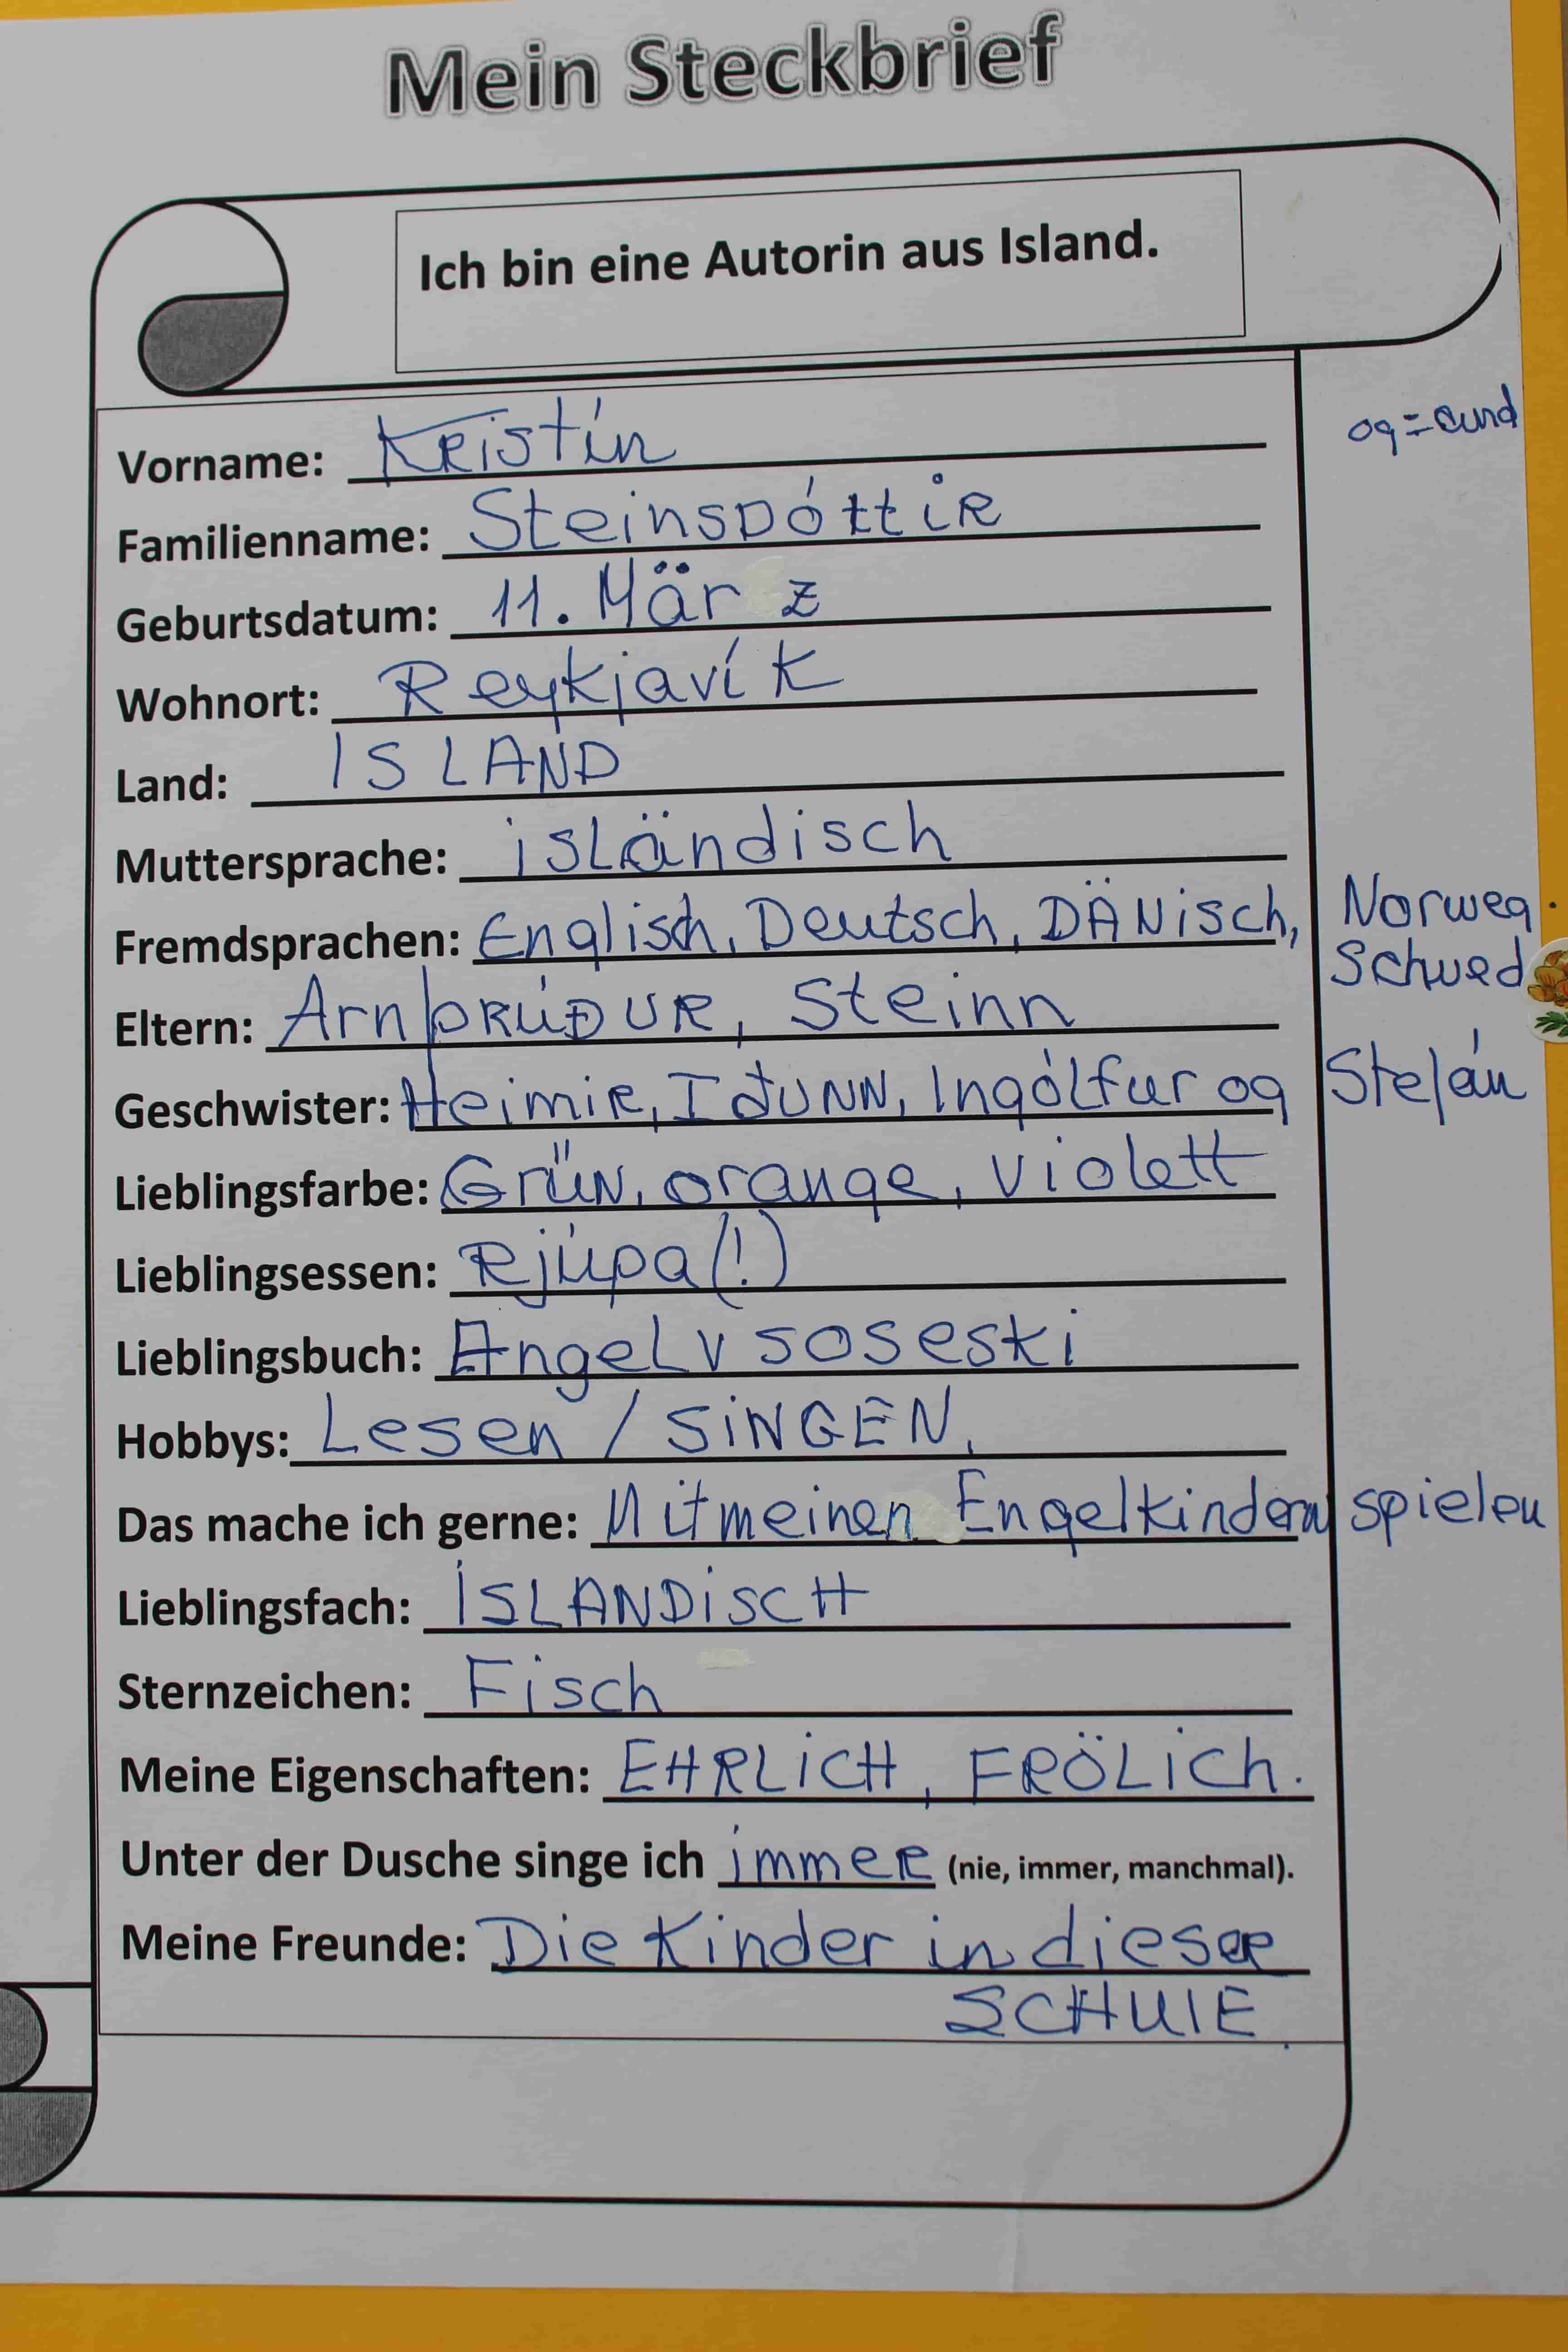 Mein Steckbrief
Ich bin eine Autorin aus Island.
og = und
Vorname: Kristín
Familienname: Steinsdóttir
Geburtsdatum: 11. März
Wohnort: Reykjavík
Land: ISLAND
Muttersprache: isländisch
Fremdsprachen: Englisch, Deutsch, DÄNisch, Norweg.
Schwed
Eltern: Arnþrúður, Steinn
Geschwister: Heimir, IðUNN, Ingólfur og Stefán
Lieblingsfarbe: GrüN, orange, violett
Lieblingsessen: Rjúpa (!)
Lieblingsbuch:
Hobbys: Lesen / SiNGEN,
Das mache ich gerne: Mit meinen Engelkindern spielen
Lieblingsfach: ISLANDiSCH
Sternzeichen: Fisch
Meine Eigenschaften: EHRLiCH, FRÖLiCh.
Unter der Dusche singe ich immer (nie, immer, manchmal).
Meine Freunde: Die Kinder in dieser
SCHUlE